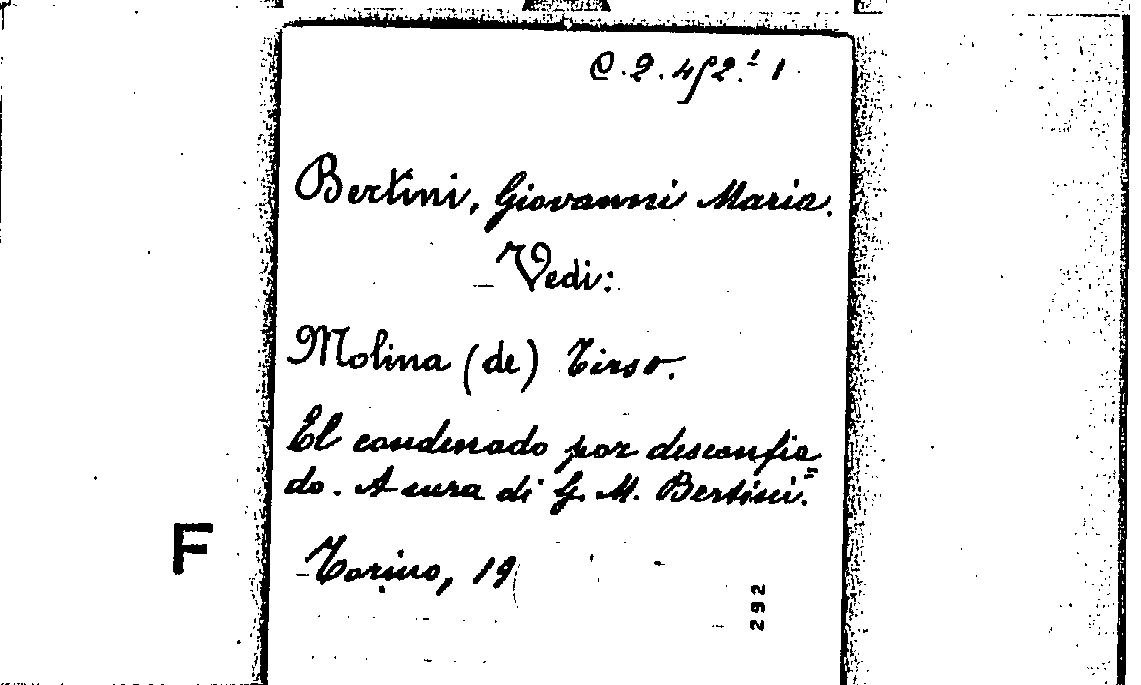 C.2.452.¹ 1
Bertini, Giovanni Maria.
Vedi:
Molina (de) Tirso.
El condenado por desconfia=
do. A cura di G. M. Bertini.
Torino, 19
F
292